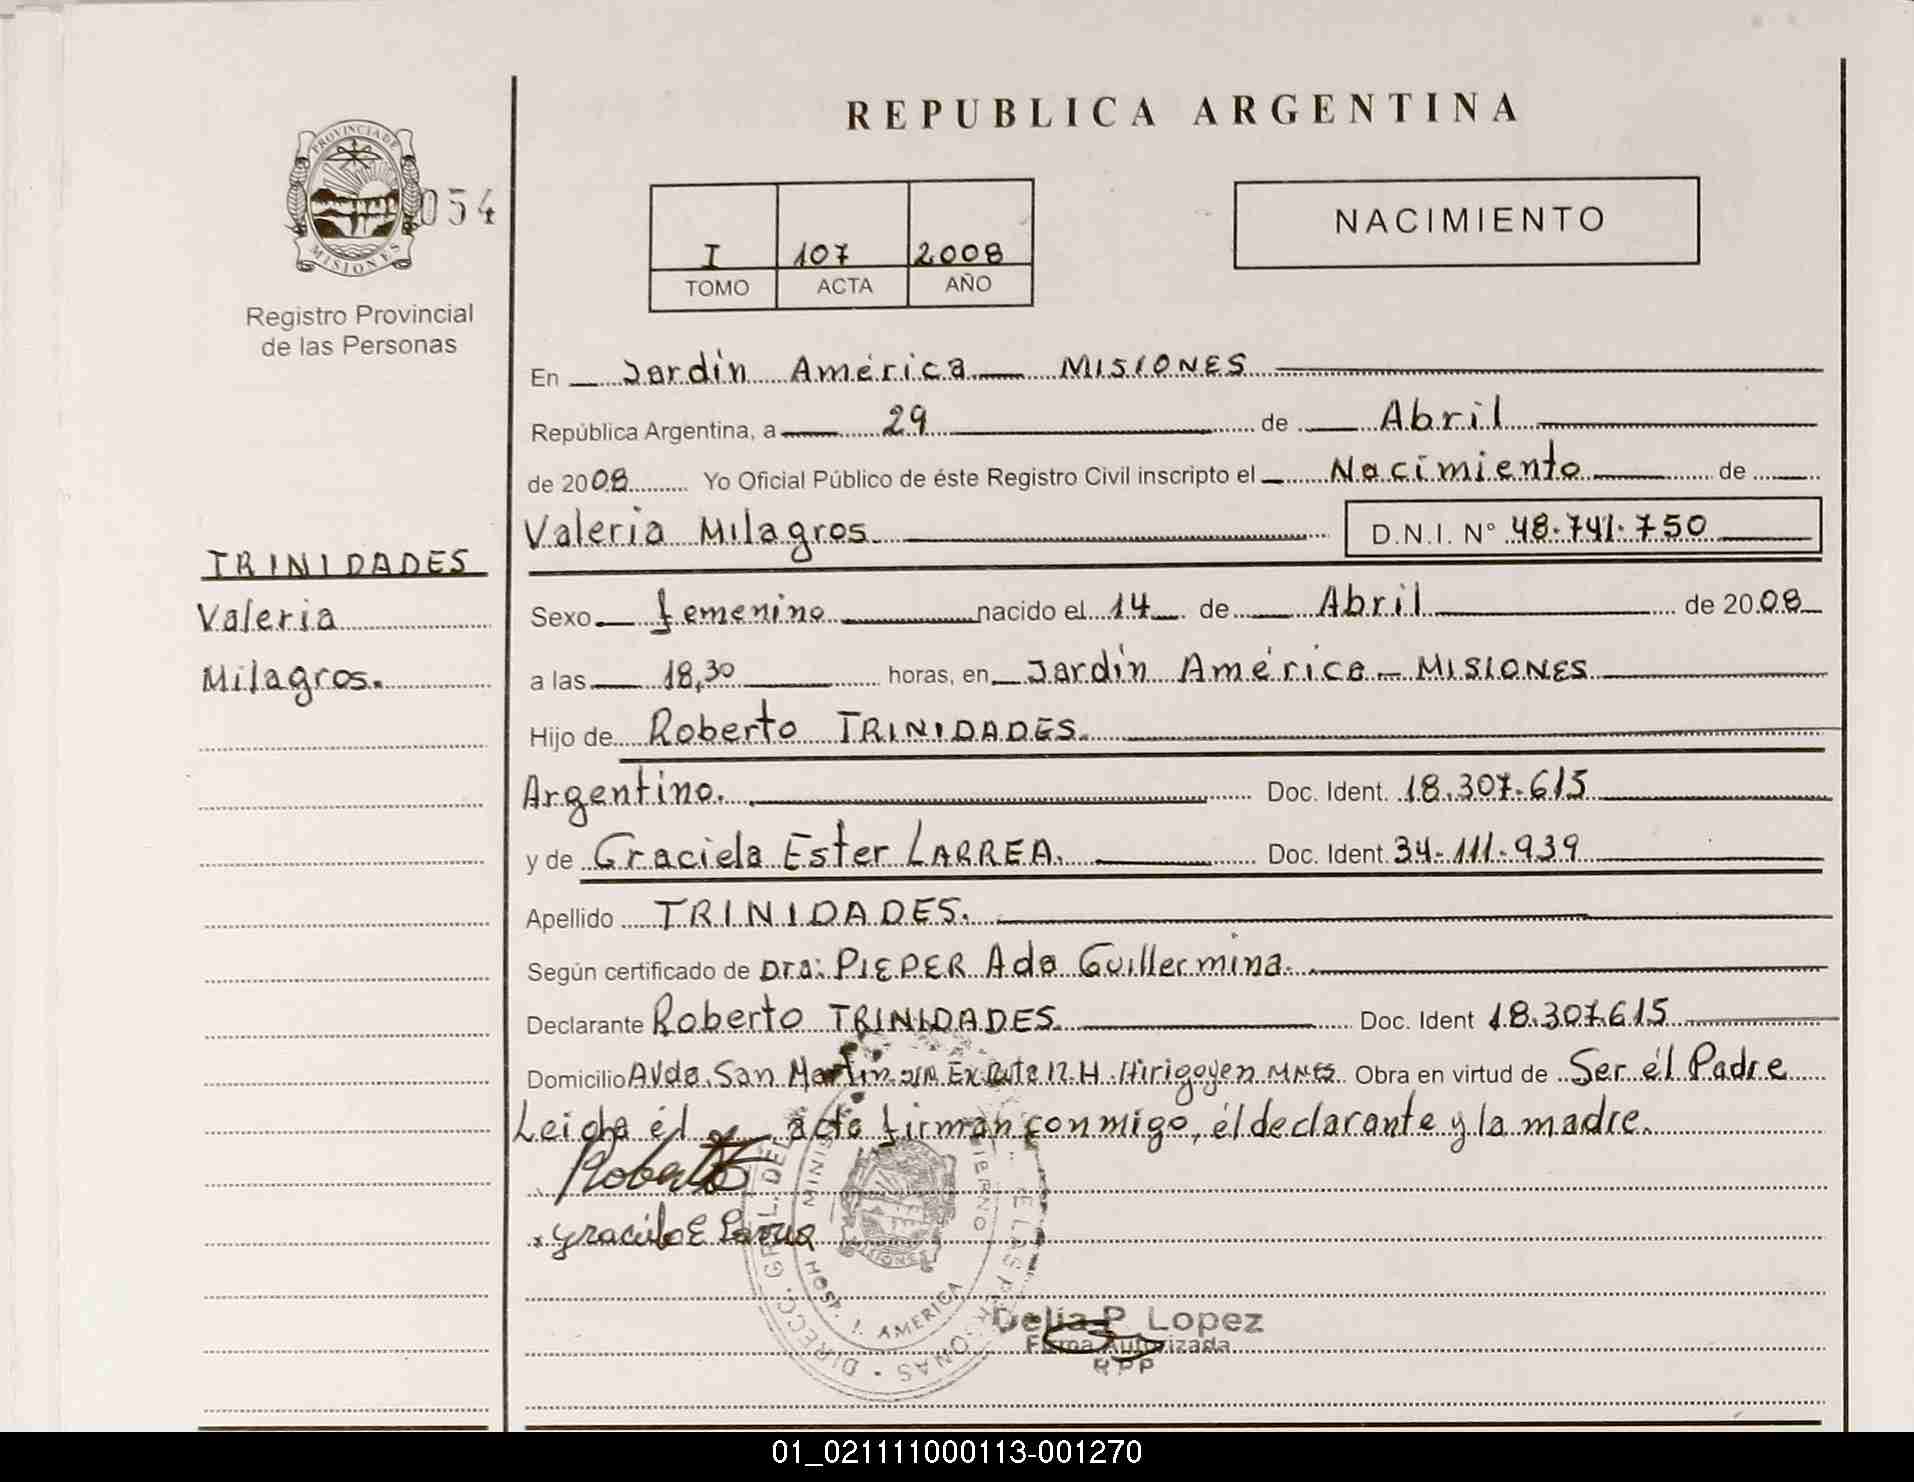 REPUBLICA ARGENTINA
PROVINCIA DE
MISIONES
054
Registro Provincial
de las Personas
I 107 2008
TOMO ACTA AÑO
NACIMIENTO
En Jardín América MISIONES
República Argentina, a 29 de Abril
de 2008 Yo Oficial Público de éste Registro Civil inscripto el Nacimiento de
Valeria Milagros D.N.I. N° 48.741.750
TRINIDADES
Valeria
Milagros.
Sexo femenino nacido el 14 de Abril de 2008
a las 18,30 horas, en Jardín América - MISIONES
Hijo de Roberto TRINIDADES.
Argentino. Doc. Ident. 18.307.615
y de Graciela Ester LARREA. Doc. Ident. 34.111.939
Apellido TRINIDADES.
Según certificado de Dra: PIEPER Ada Guillermina.
Declarante Roberto TRINIDADES Doc. Ident 18.307.615
Domicilio Avda. San Martín Ex Ruta 12 H. Hirigoyen MNES Obra en virtud de Ser él Padre
Leida él acta firman conmigo, él declarante y la madre.
Roberto
Graciela E Larrea
DIRECC. GRAL. DEL
HOSP. J. AMERICA
Delia P. Lopez
Firma Autorizada
RPP
01_021111000113-001270